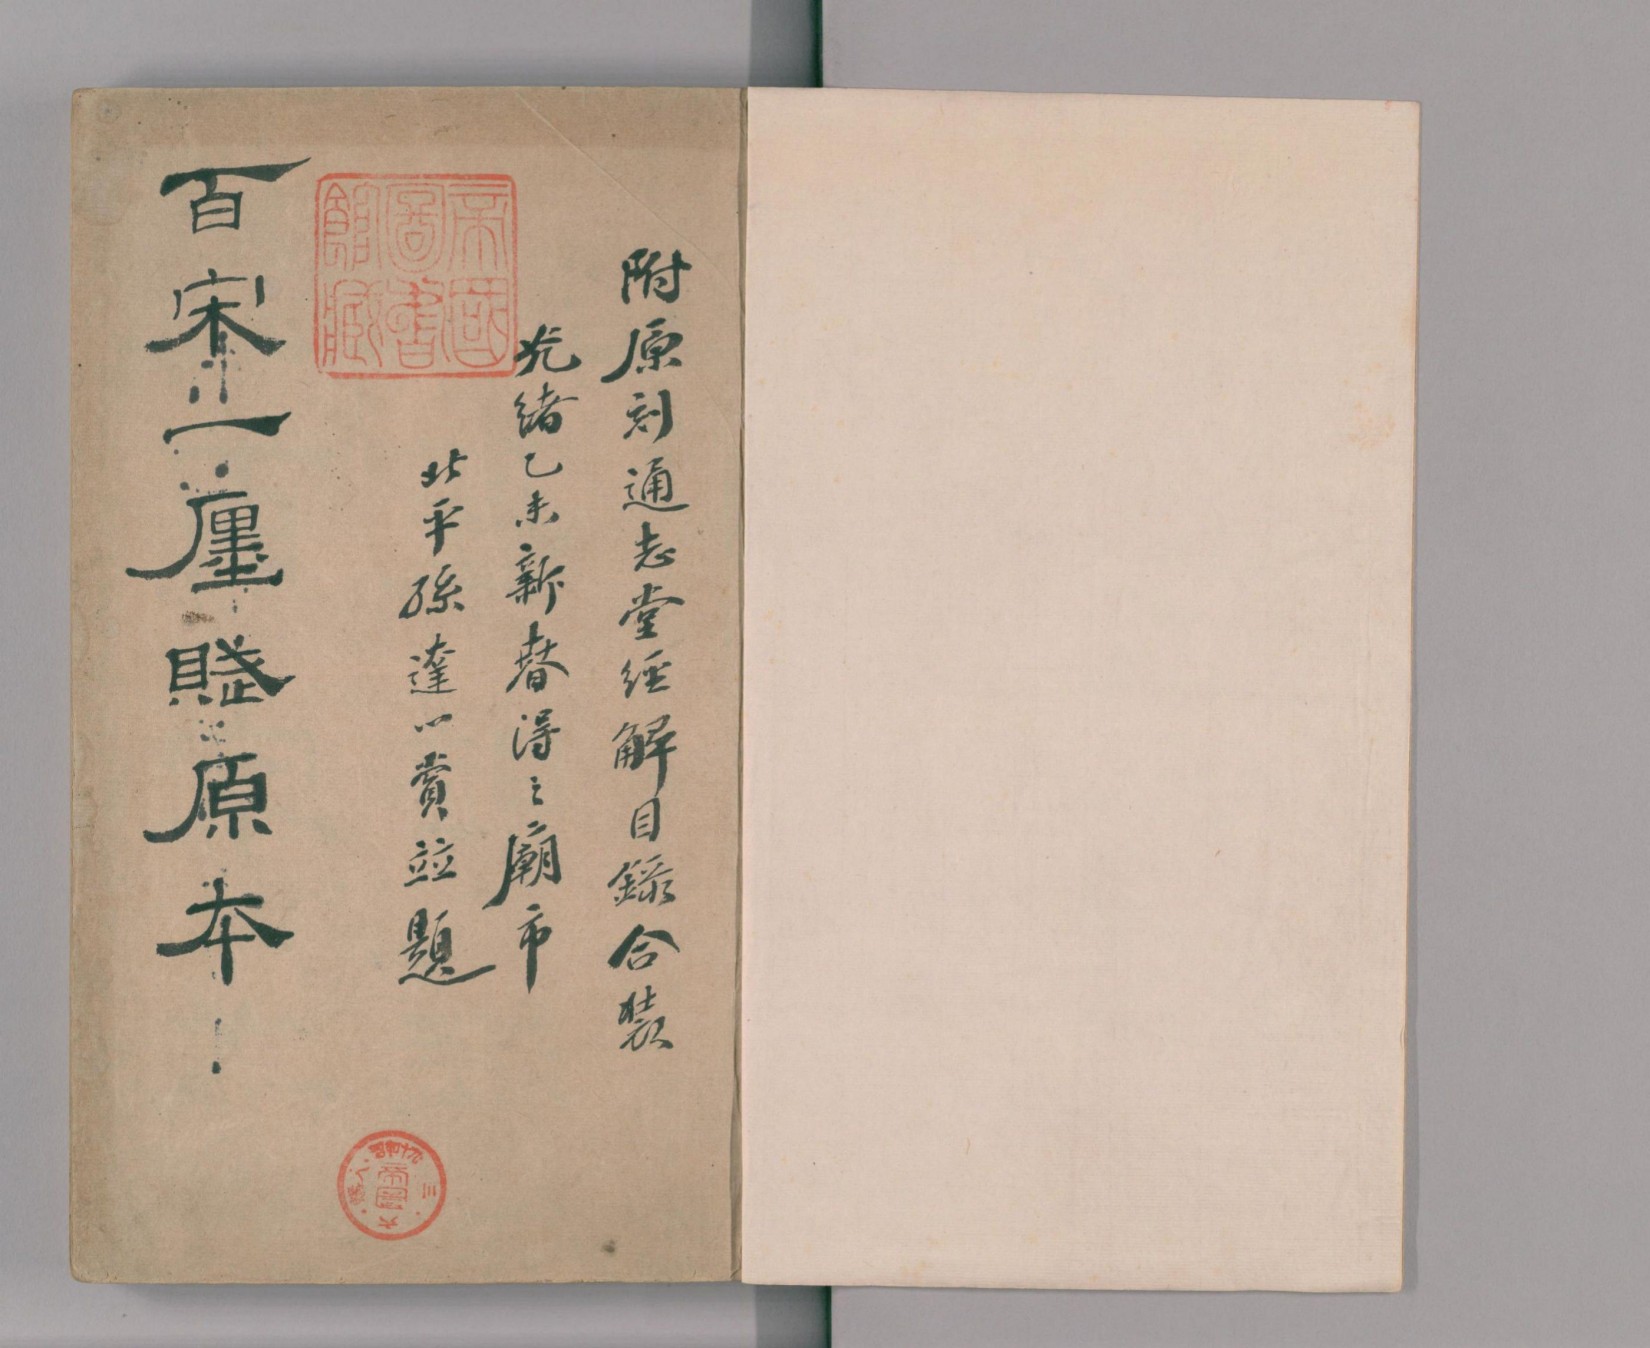 附原刻通志堂經解目錄合裝
光緒乙未新春得之廟市
北平孫達心賞竝題
百宋一廛賦原本
帝國
圖書
館藏
帝圖